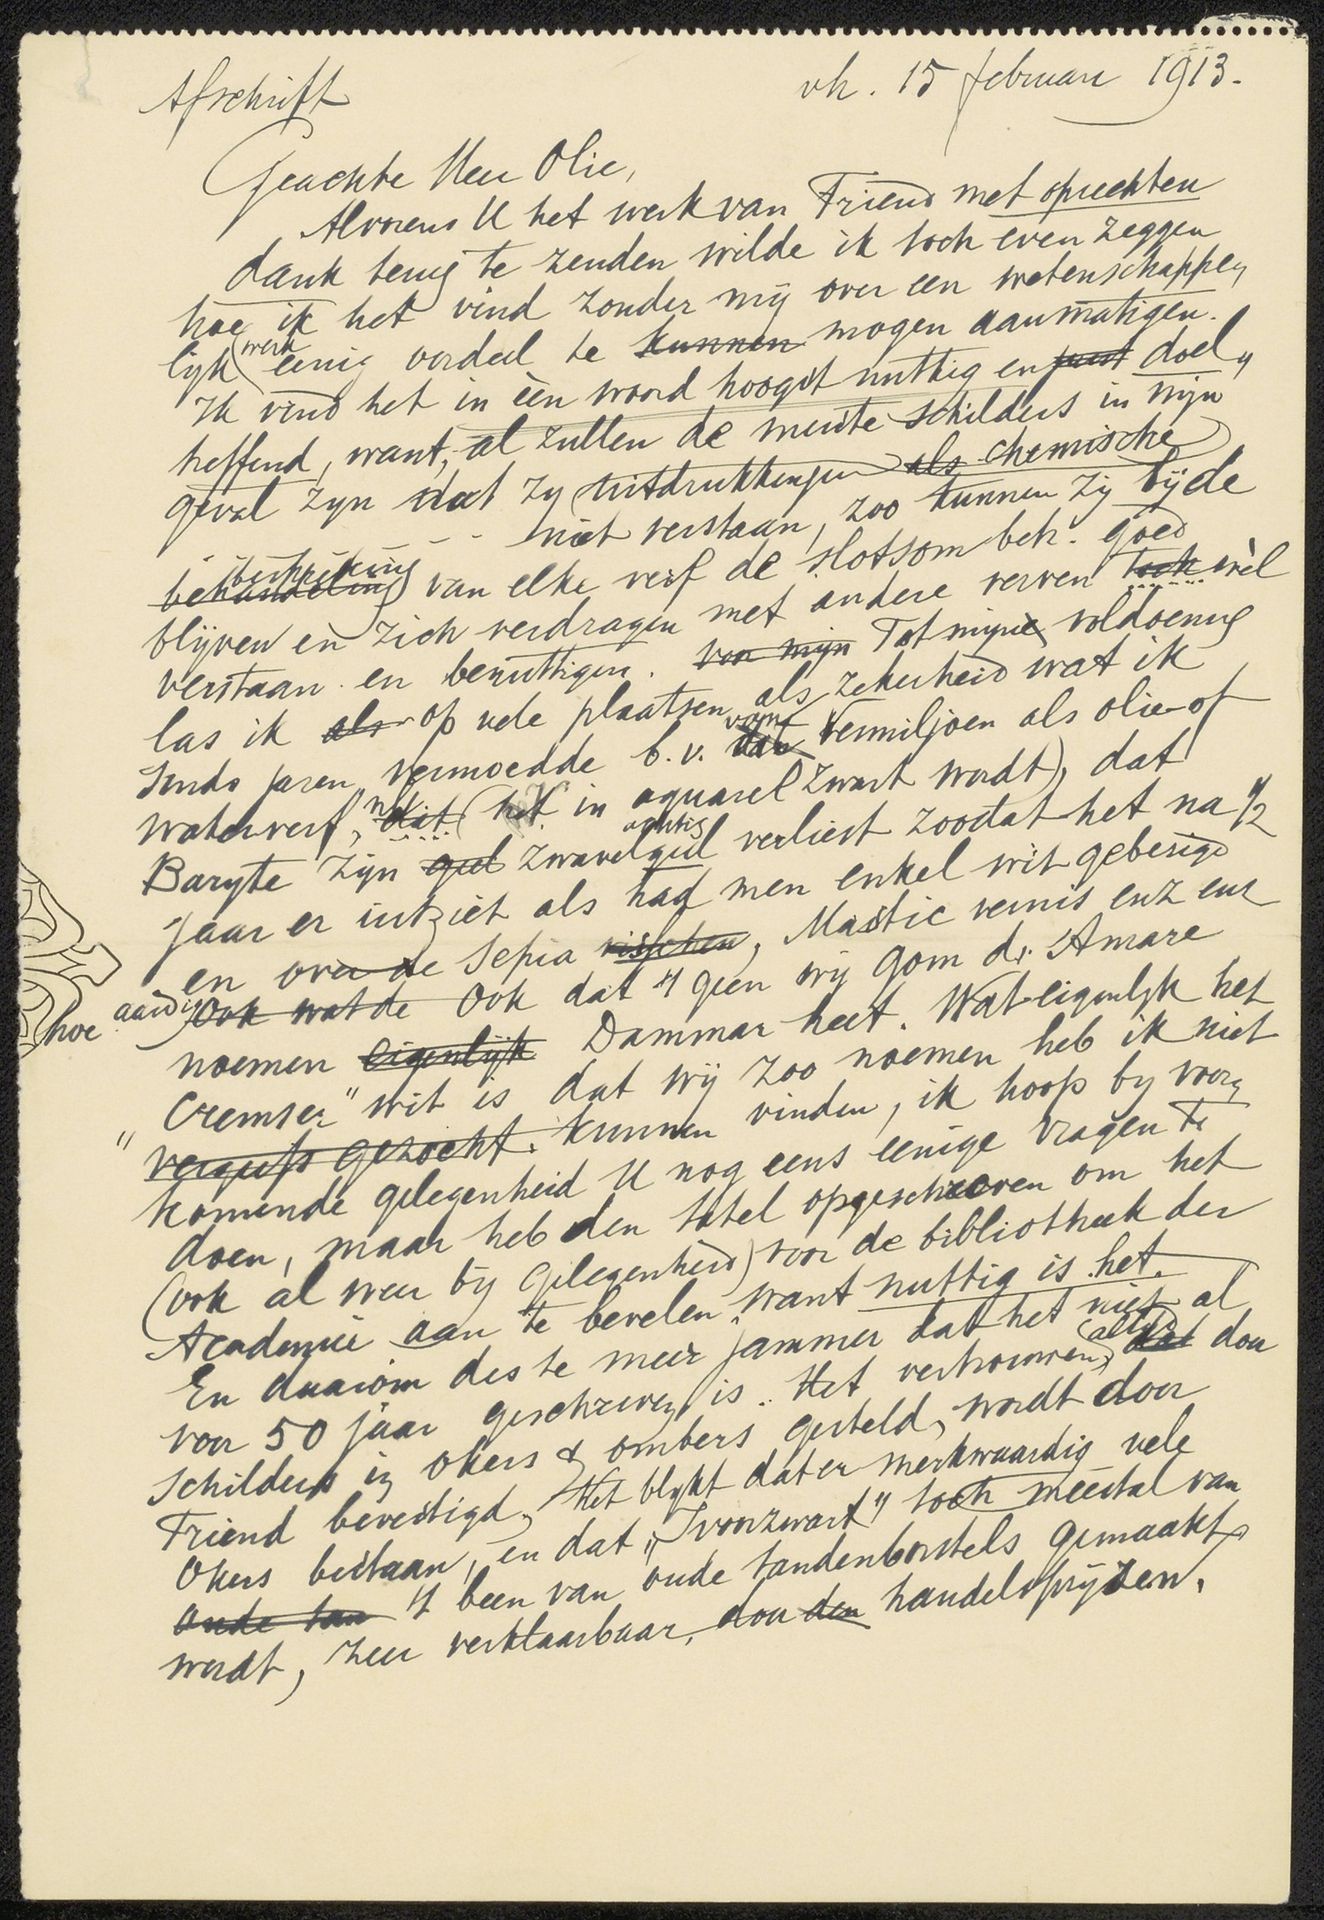 Afschrift
vh. 15 februari 1913.
Geachte Heer Olie,
Alvorens U het werk van Friend met oprechten
dank terug te zenden wilde ik toch even zeggen
hoe ik het vind zonder mij over een wetenschappe„
lijk werk eenig oordeel te kunnen mogen aanmatigen.
Ik vind het in één woord hoogst nuttig en juist doel„
treffend, want, al zullen de meeste schilders in mijn
geval zijn dat zij uitdrukkingen als chemische
- - - - niet verstaan, zoo kunnen zij bij de
beschrijving
behandeling van elke verf de slotsom betr. goed
blijven en zich verdragen met andere verven toch wèl
verstaan en benuttigen. voor mijn Tot mijne voldoening
las ik als op vele plaatsen als zekerheid wat ik
sinds jaren vermoedde b.v. dat Vermiljoen als olie of
waterverf, dat (het in aquarel zwart wordt), dat
achtig
Baryte zijn geel zwavelgeel verliest zoodat het na ½
jaar er uitziet als had men enkel wit gebezigd
en over de Sepia vischen, Mastic vernis enz enz
hoe aardig ook wat de Ook dat 't geen wij gom d. Amare
noemen eigenlijk Dammar heet. Wat eigenlijk het
"Cremser" wit is dat wij zoo noemen heb ik niet
vergeefs gezocht. kunnen vinden, ik hoop bij voor„
komende gelegenheid U nog eens eenige vragen te
doen, maar heb den titel opgeschreven om het
(ook al weer bij gelegenheid) voor de bibliotheek der
Academie aan te bevelen want nuttig is het.
En daarom des te meer jammer dat het niet al
voor 50 jaar geschreven is. Het vertrouwen, altijd dat door
schilders in okers & ombers gesteld, wordt door
Friend bevestigd. Het blijkt dat er merkwaardig vele
Okers bestaan, en dat „Ivoorzwart" toch meestal van
oude tan 't been van oude tandenborstels gemaakt
wordt, zeer verklaarbaar, door den handelsprijzen.